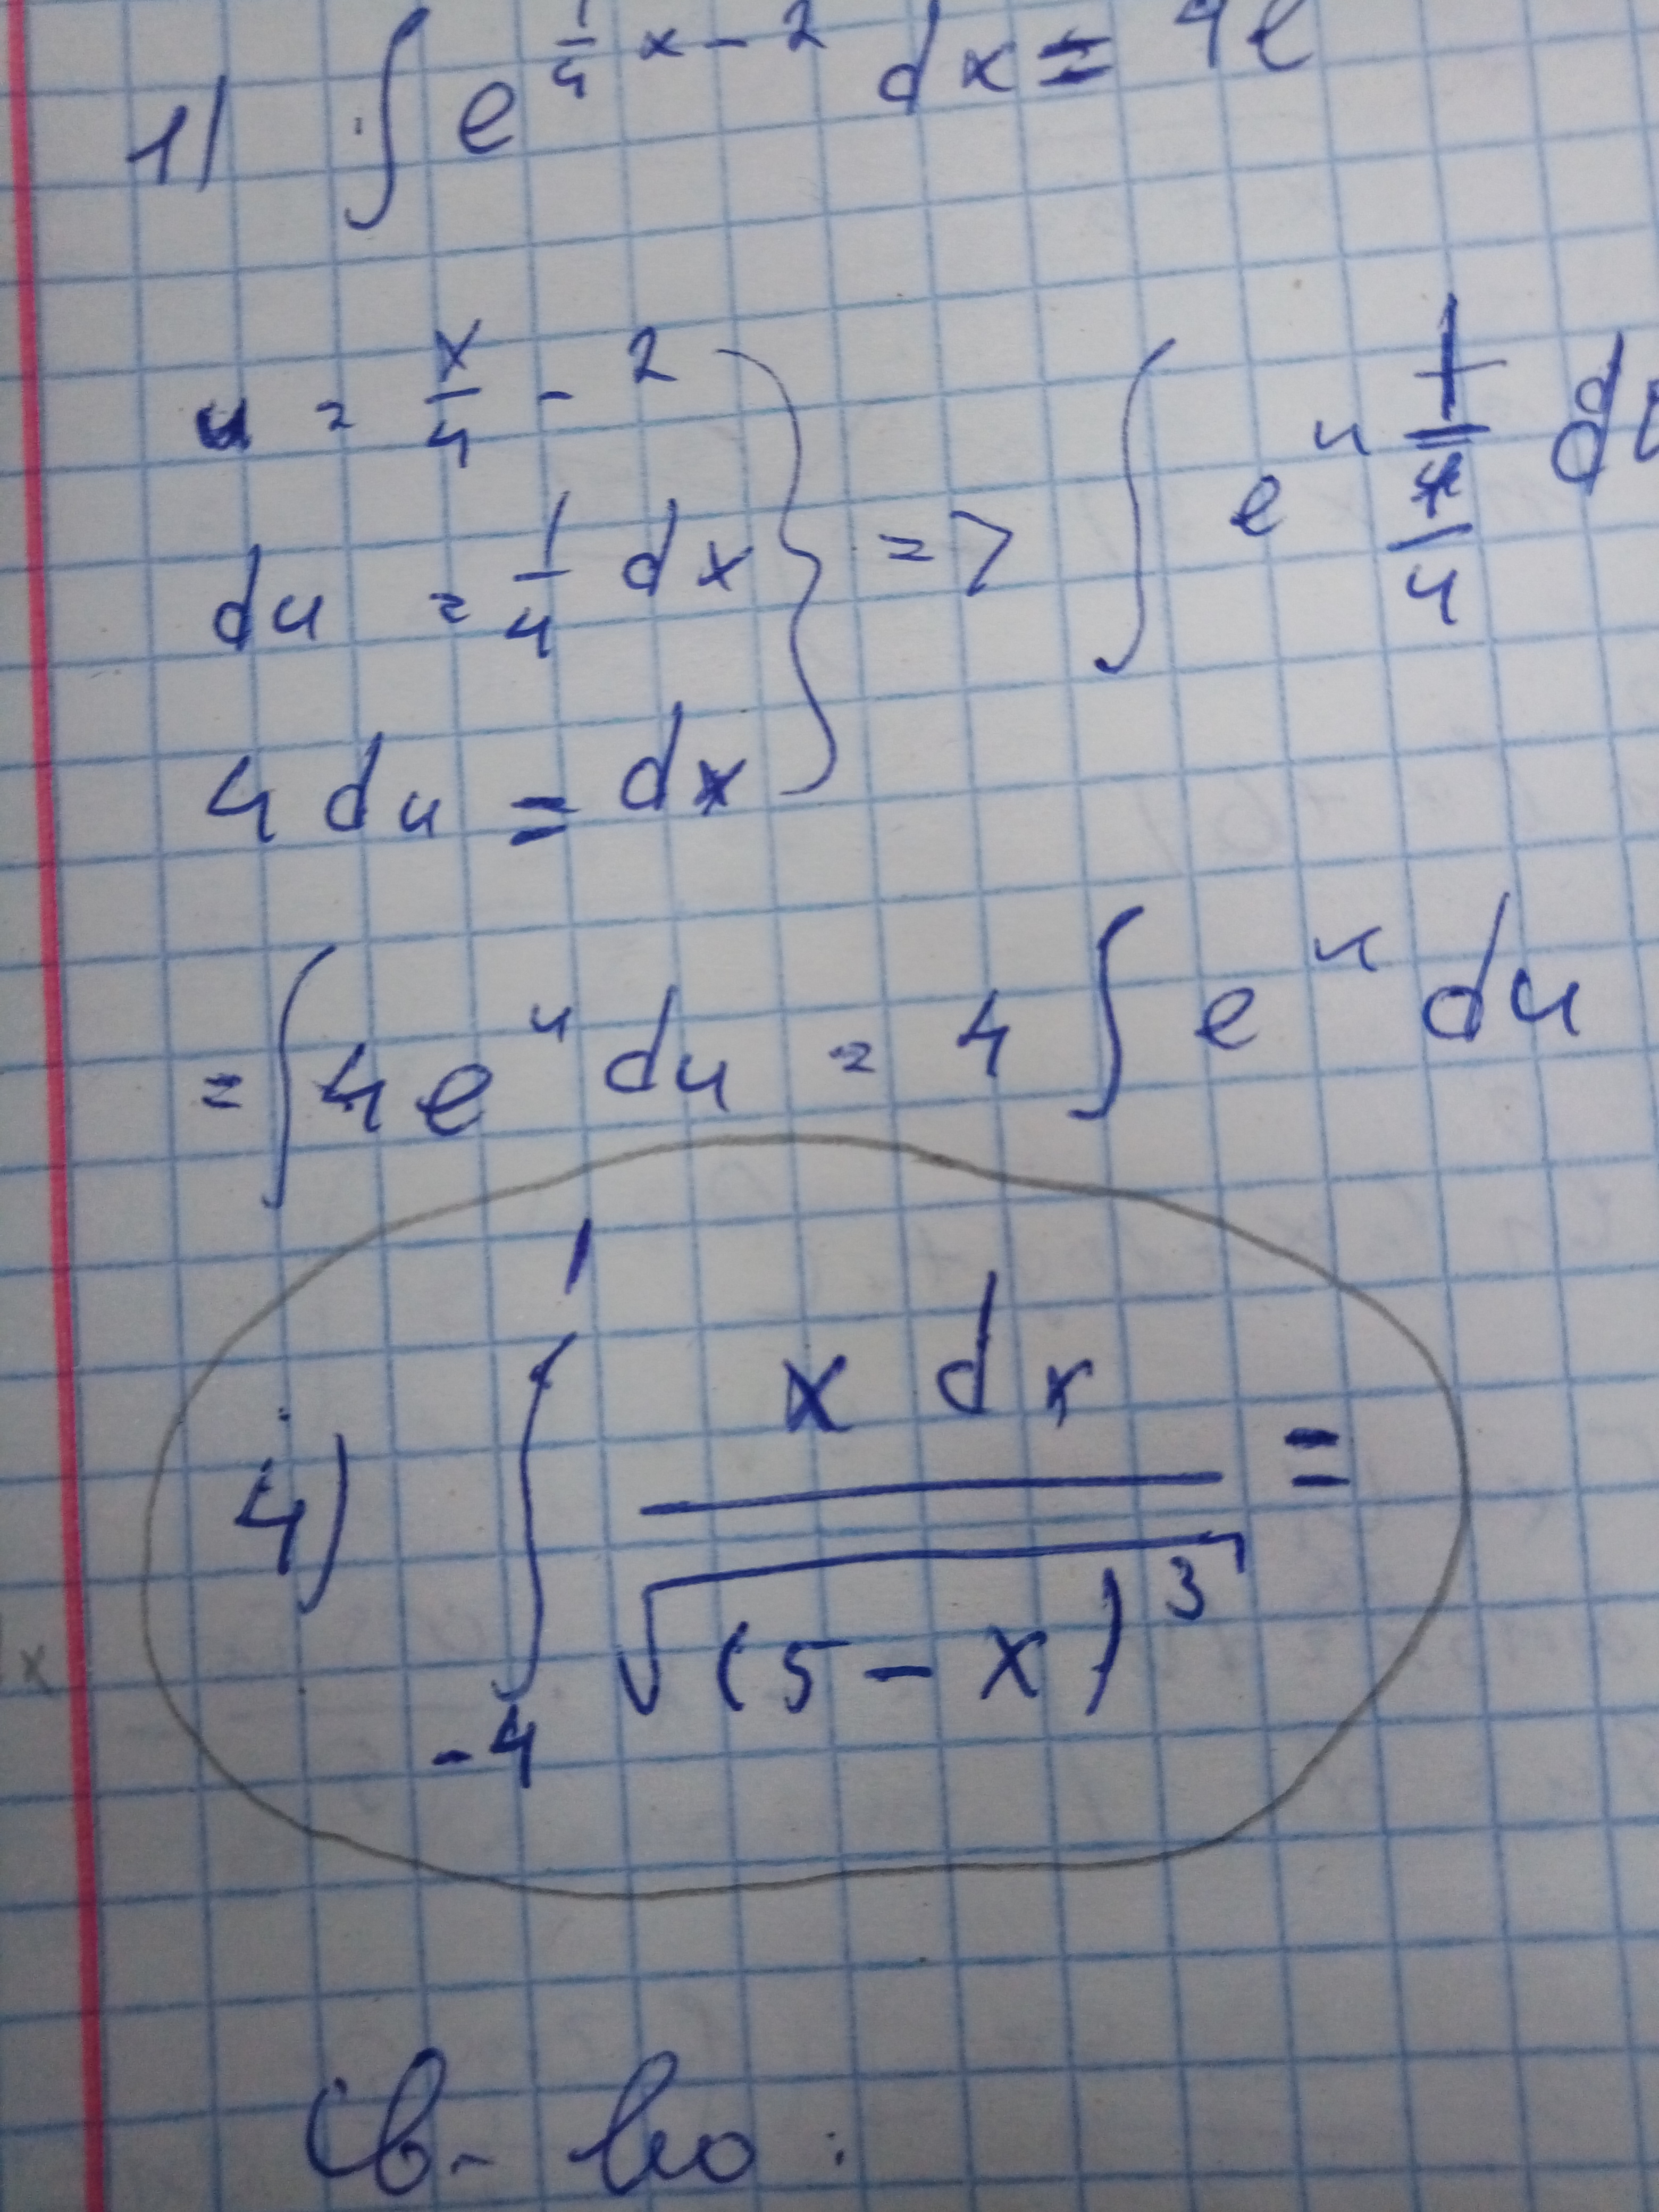 1) ∫ e^{1/4 x - 2} dx = 4e
u = x/4 - 2
du = 1/4 dx } => ∫ e^u 1/(1/4) du
4 du = dx
= ∫ 4 e^u du = 4 ∫ e^u du
4) ∫_{-4}^{1} x dx / √(5 - x)^3 =
x
Св-во :